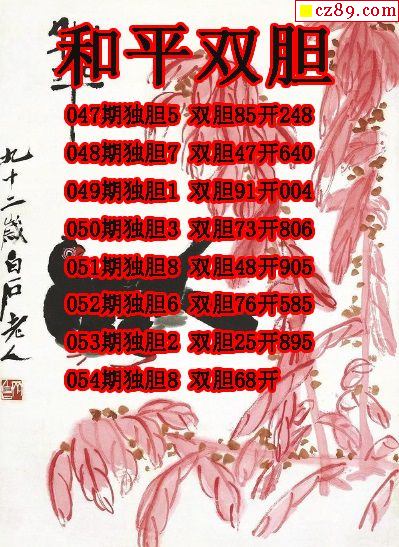 cz89.com
和平双胆
047期独胆5 双胆85开248
048期独胆7 双胆47开640
049期独胆1 双胆91开004
050期独胆3 双胆73开806
051期独胆8 双胆48开905
052期独胆6 双胆76开585
053期独胆2 双胆25开895
054期独胆8 双胆68开
九十二岁白石老人